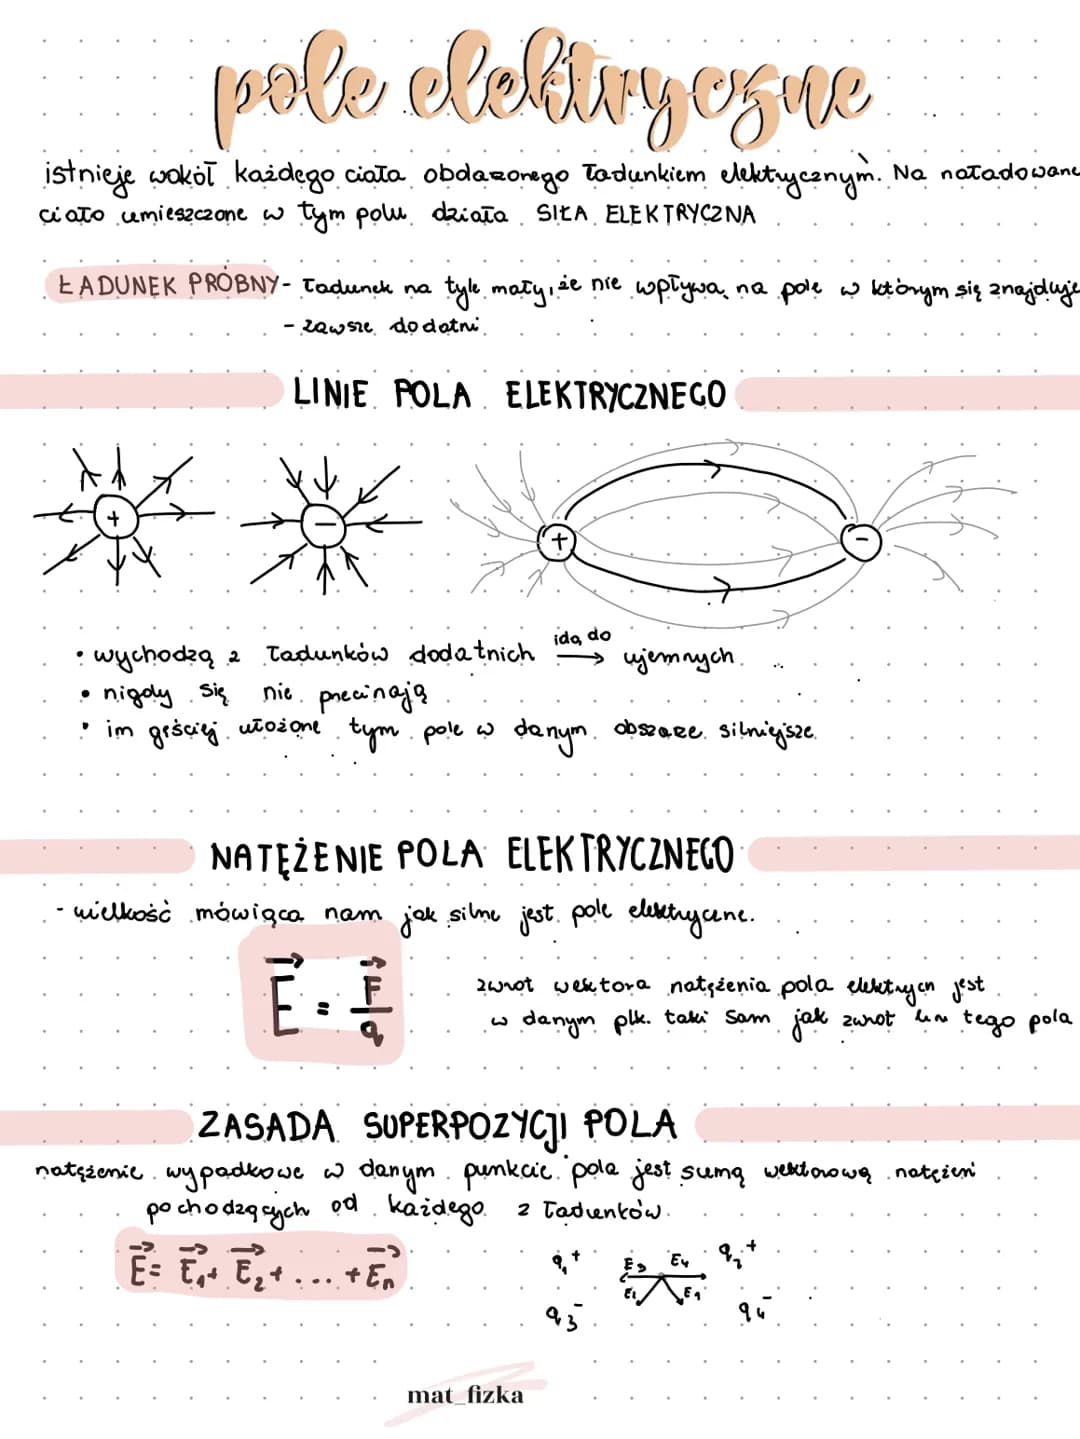 pole elektryczne
istnieje wokół każdego ciała obdarzonego ładunkiem elektrycznym. Na naładowane
ciało umieszczone w tym polu działa SIŁA ELEKTRYCZNA
ŁADUNEK PRÓBNY - ładunek na tyle mały, że nie wpływa na pole w którym się znajduje
- zawsze dodatni
LINIE POLA ELEKTRYCZNEGO
+
-
+
-
• wychodzą z ładunków dodatnich idą do → ujemnych
• nigdy się nie przecinają
• im gęściej ułożone tym pole w danym obszarze silniejsze
NATĘŻENIE POLA ELEKTRYCZNEGO
- wielkość mówiąca nam jak silne jest pole elektryczne.
E = F/q
zwrot wektora natężenia pola elektrycn jest
w danym pkt. taki sam jak zwrot lin tego pola
ZASADA SUPERPOZYCJI POLA
natężenie wypadkowe w danym punkcie pola jest sumą wektorową natężeń
pochodzących od każdego z ładunków.
E = E₁ + E₂ + ... + Eₙ
q₁⁺ E₃ E₄ q₂⁺
E₂ E₁
q₃⁻ q₄⁻
mat_fizka